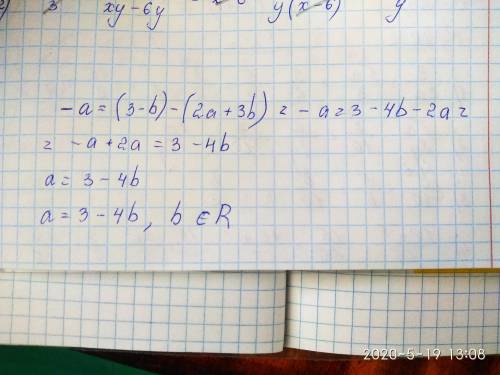 3 xy-6y y(x-6) y
-a = (3-b)-(2a+3b) = -a = 3-4b-2a =
= -a+2a = 3-4b
a = 3-4b
a = 3-4b, b ∈ R
2020-5-19 13:08